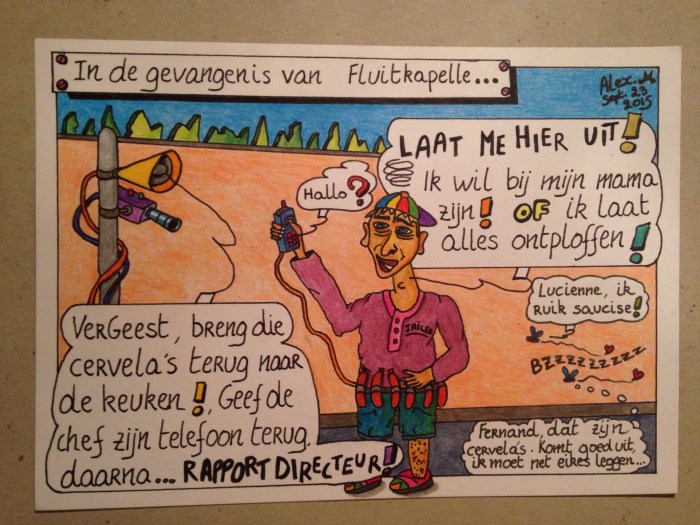 In de gevangenis van Fluitkapelle...
Alex. M
Sept. 23
2015
LAAT ME HIER UIT!
Ik wil bij mijn mama
zijn! OF ik laat
alles ontploffen!
Hallo?
JAILED
Lucienne, ik
ruik saucise!
BZzzzzzzzz
VerGeest, breng die
cervela's terug naar
de keuken!, Geef de
chef zijn telefoon terug.
daarna... RAPPORT DIRECTEUR!
Fernand, dat zijn
cervela's. Komt goed uit,
ik moet net eikes leggen...